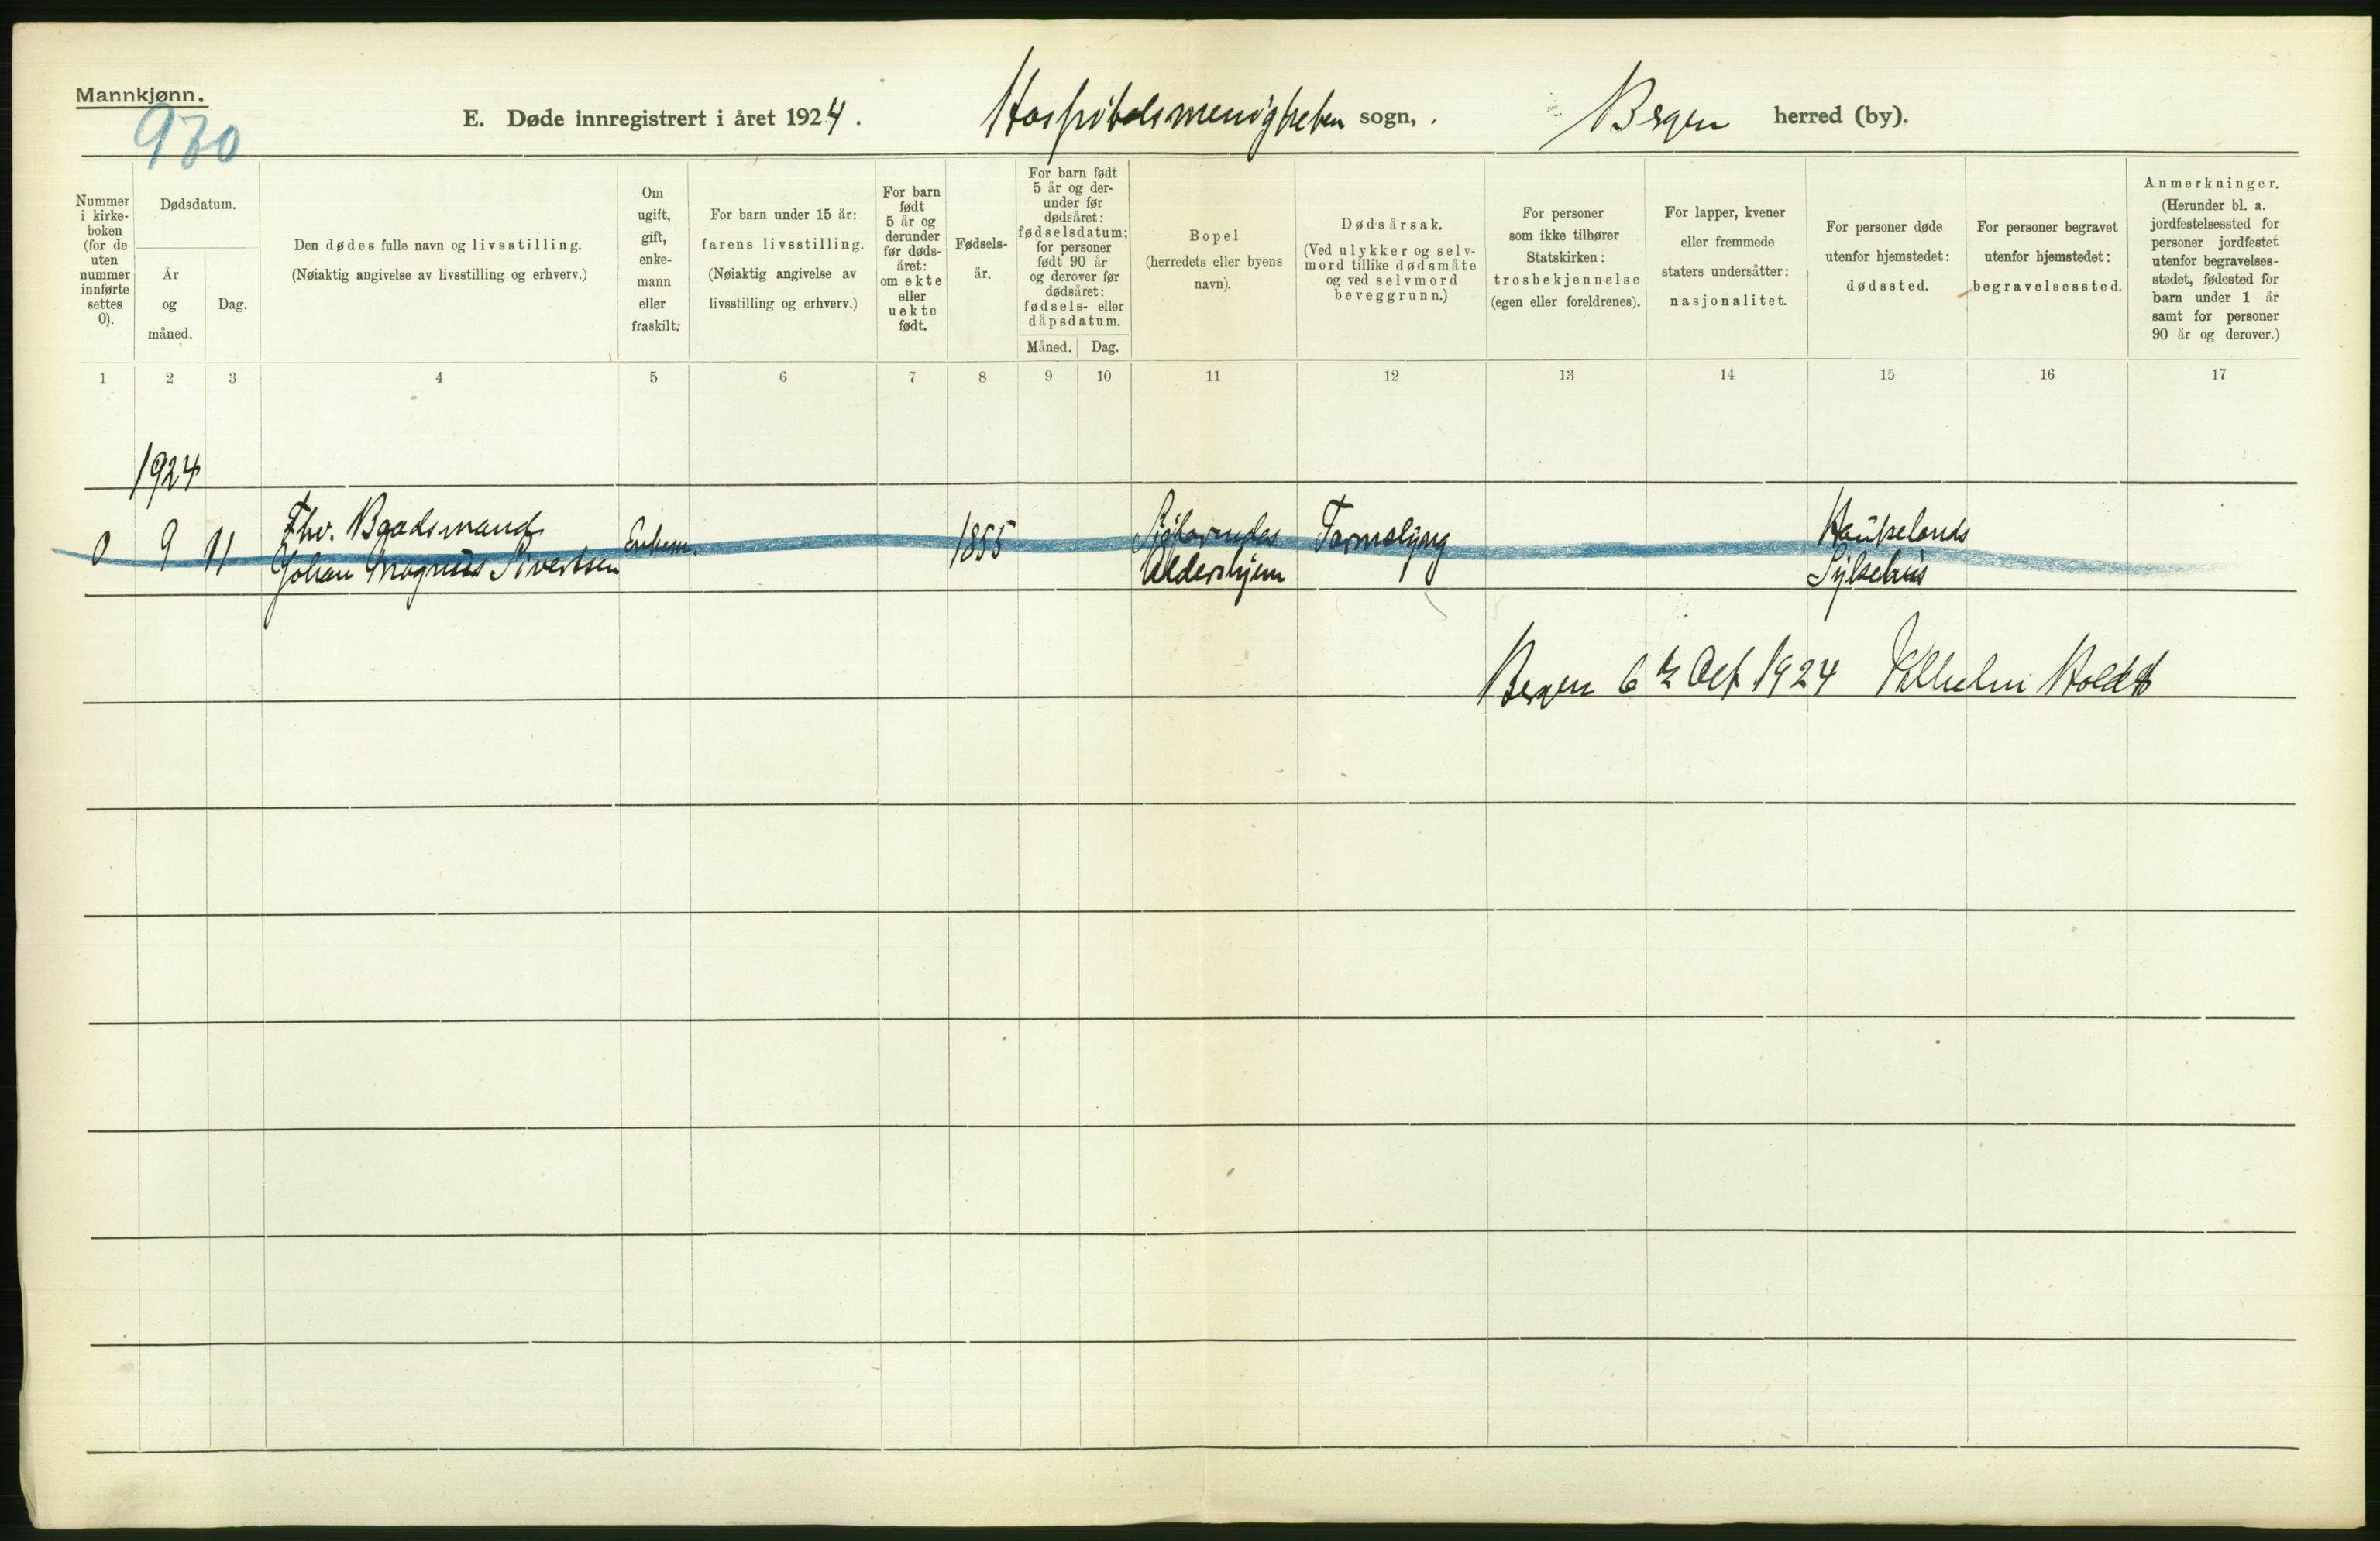 Mannkjønn.
930
E. Døde innregistrert i året 1924. Hospitalsmenigheten sogn, Bergen herred (by).
Nummer i kirke-boken (for de uten nummer innførte settes 0).
Dødsdatum.
År og måned.
Dag.
Den dødes fulle navn og livsstilling.
(Nøiaktig angivelse av livsstilling og erhverv.)
Om ugift, gift, enke-mann eller fraskilt:
For barn under 15 år: farens livsstilling.
(Nøiaktig angivelse av livsstilling og erhverv.)
For barn født 5 år og derunder før døds-året: om ekte eller uekte født.
Fødsels-år.
For barn født 5 år og der-under før dødsåret: fødselsdatum; for personer født 90 år og derover før dødsåret: fødsels- eller dåpsdatum.
Måned. Dag.
Bopel
(herredets eller byens navn).
Dødsårsak.
(Ved ulykker og selv-mord tillike dødsmåte og ved selvmord beveggrunn.)
For personer som ikke tilhører Statskirken: trosbekjennelse (egen eller foreldrenes).
For lapper, kvener eller fremmede staters undersåtter: nasjonalitet.
For personer døde utenfor hjemstedet: dødssted.
For personer begravet utenfor hjemstedet: begravelsessted.
Anmerkninger.
(Herunder bl. a. jordfestelsessted for personer jordfestet utenfor begravelses-stedet, fødested for barn under 1 år samt for personer 90 år og derover.)
1 2 3 4 5 6 7 8 9 10 11 12 13 14 15 16 17
1924
0 9 11 Fhv. Baadsmand Johan Magnus Sivertsen Enkem. 1855 Sjøfarendes Aldershjem Tarmslyng Haukelands Sykehus
Bergen 6 Oct 1924 Vilhelm Holdt